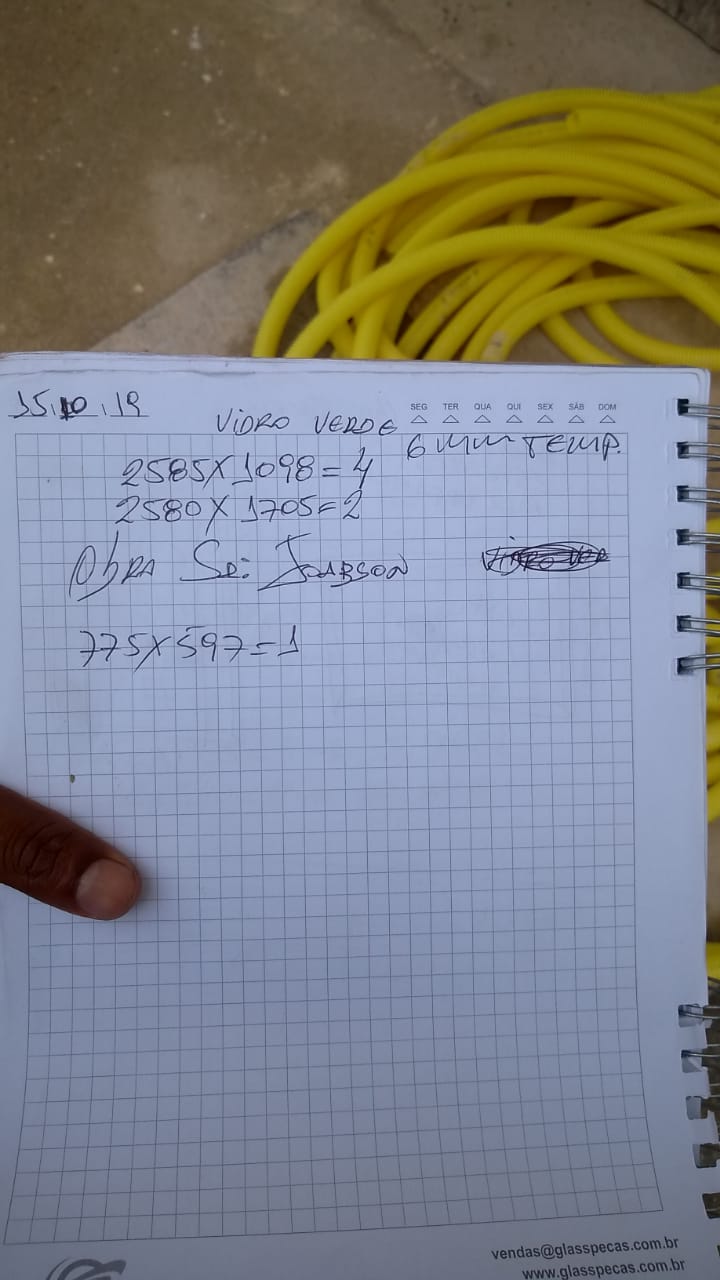 15.10.19
VIDRO VERDE
SEG TER QUA QUI SEX SÁB DOM
6 mm TEMP.
2585X1098=4
2580X1705=2
Obra Sr: Joabson
775X597=1
vendas@glasspecas.com.br
www.glasspecas.com.br